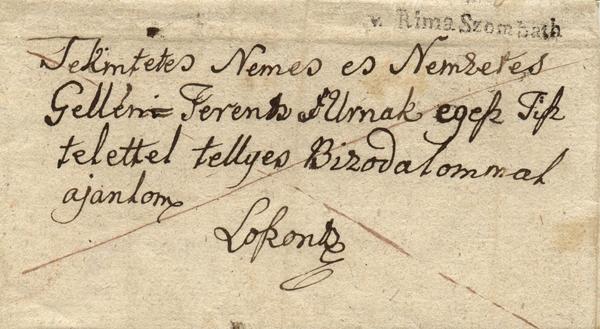 v. Rima Szombath
Tekintetes Nemes es Nemzetes
Gelléni Ferentz Urnak egesz Tisz
telettel tellyes Bizodalommal
ajanlom
Loszontz